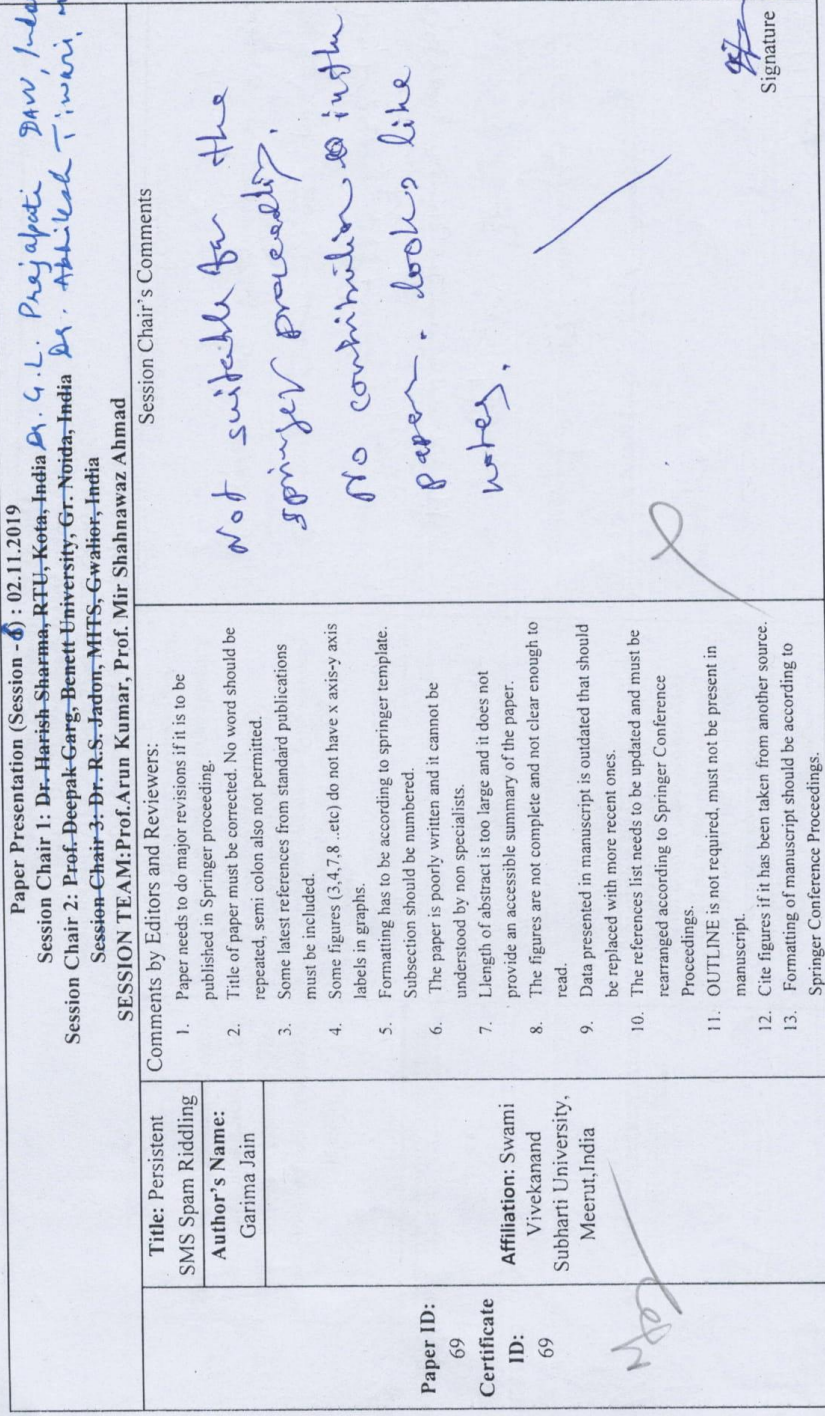 Paper Presentation (Session - 6) : 02.11.2019
Session Chair 1: Dr. Harish Sharma, RTU, Kota, India Dr. G. L. Prajapati DAVV, Indo
Session Chair 2: Prof. Deepak Garg, Benett University, Gr. Noida, India Dr. Akhilesh Tiwari,
Session Chair 3: Dr. R.S. Jadon, MITS, Gwalior, India
SESSION TEAM:Prof.Arun Kumar, Prof. Mir Shahnawaz Ahmad
Paper ID:
69
Certificate
ID:
69
Title: Persistent
SMS Spam Riddling
Author's Name:
Garima Jain
Affiliation: Swami
Vivekanand
Subharti University,
Meerut,India
Comments by Editors and Reviewers:
1. Paper needs to do major revisions if it is to be
published in Springer proceeding.
2. Title of paper must be corrected. No word should be
repeated, semi colon also not permitted.
3. Some latest references from standard publications
must be included.
4. Some figures (3,4,7,8 ..etc) do not have x axis-y axis
labels in graphs.
5. Formatting has to be according to springer template.
Subsection should be numbered.
6. The paper is poorly written and it cannot be
understood by non specialists.
7. Llength of abstract is too large and it does not
provide an accessible summary of the paper.
8. The figures are not complete and not clear enough to
read.
9. Data presented in manuscript is outdated that should
be replaced with more recent ones.
10. The references list needs to be updated and must be
rearranged according to Springer Conference
Proceedings.
11. OUTLINE is not required, must not be present in
manuscript.
12. Cite figures if it has been taken from another source.
13. Formatting of manuscript should be according to
Springer Conference Proceedings.
Session Chair's Comments
Not suitable for the
springer proceeding.
No contribution in the
paper. looks like
notes.
Signature